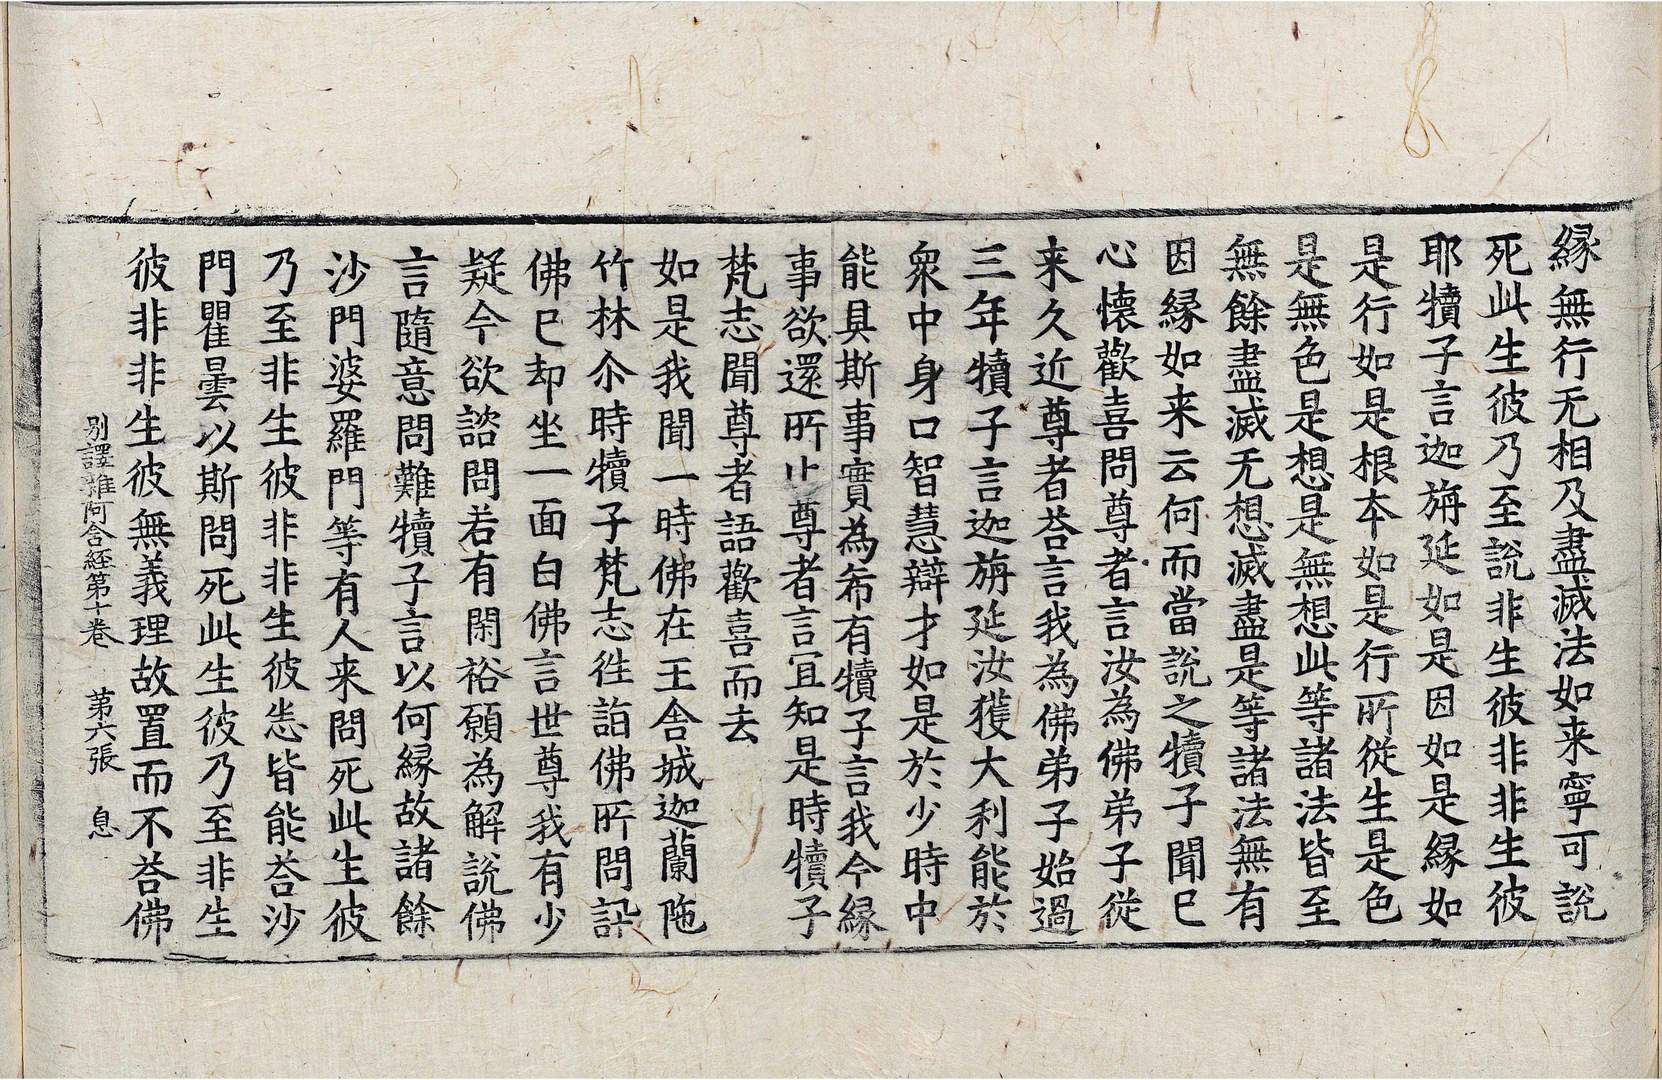 縁無行无相及盡滅法如来寧可說
死此生彼乃至說非生彼非非生彼
耶犢子言迦旃延如是因如是縁如
是行如是根本如是行所従生是色
是無色是想是無想此等諸法皆至
無餘盡滅无想滅盡是等諸法無有
因縁如来云何而當說之犢子聞已
心懷歡喜問尊者言汝為佛弟子従
来久近尊者荅言我為佛弟子始過
三年犢子言迦旃延汝獲大利能於
衆中身口智慧辯才如是於少時中
能具斯事實為希有犢子言我今縁
事欲還所止尊者言宜知是時犢子
梵志聞尊者語歡喜而去
如是我聞一時佛在王舍城迦蘭陁
竹林尒時犢子梵志徃詣佛所問訊
佛已却坐一面白佛言世尊我有少
疑今欲諮問若有閑裕願為解說佛
言隨意問難犢子言以何縁故諸餘
沙門婆羅門等有人来問死此生彼
乃至非生彼非非生彼悉皆能荅沙
門瞿曇以斯問死此生彼乃至非生
彼非非生彼無義理故置而不荅佛
別譯雜阿含経第十卷　第六張　息